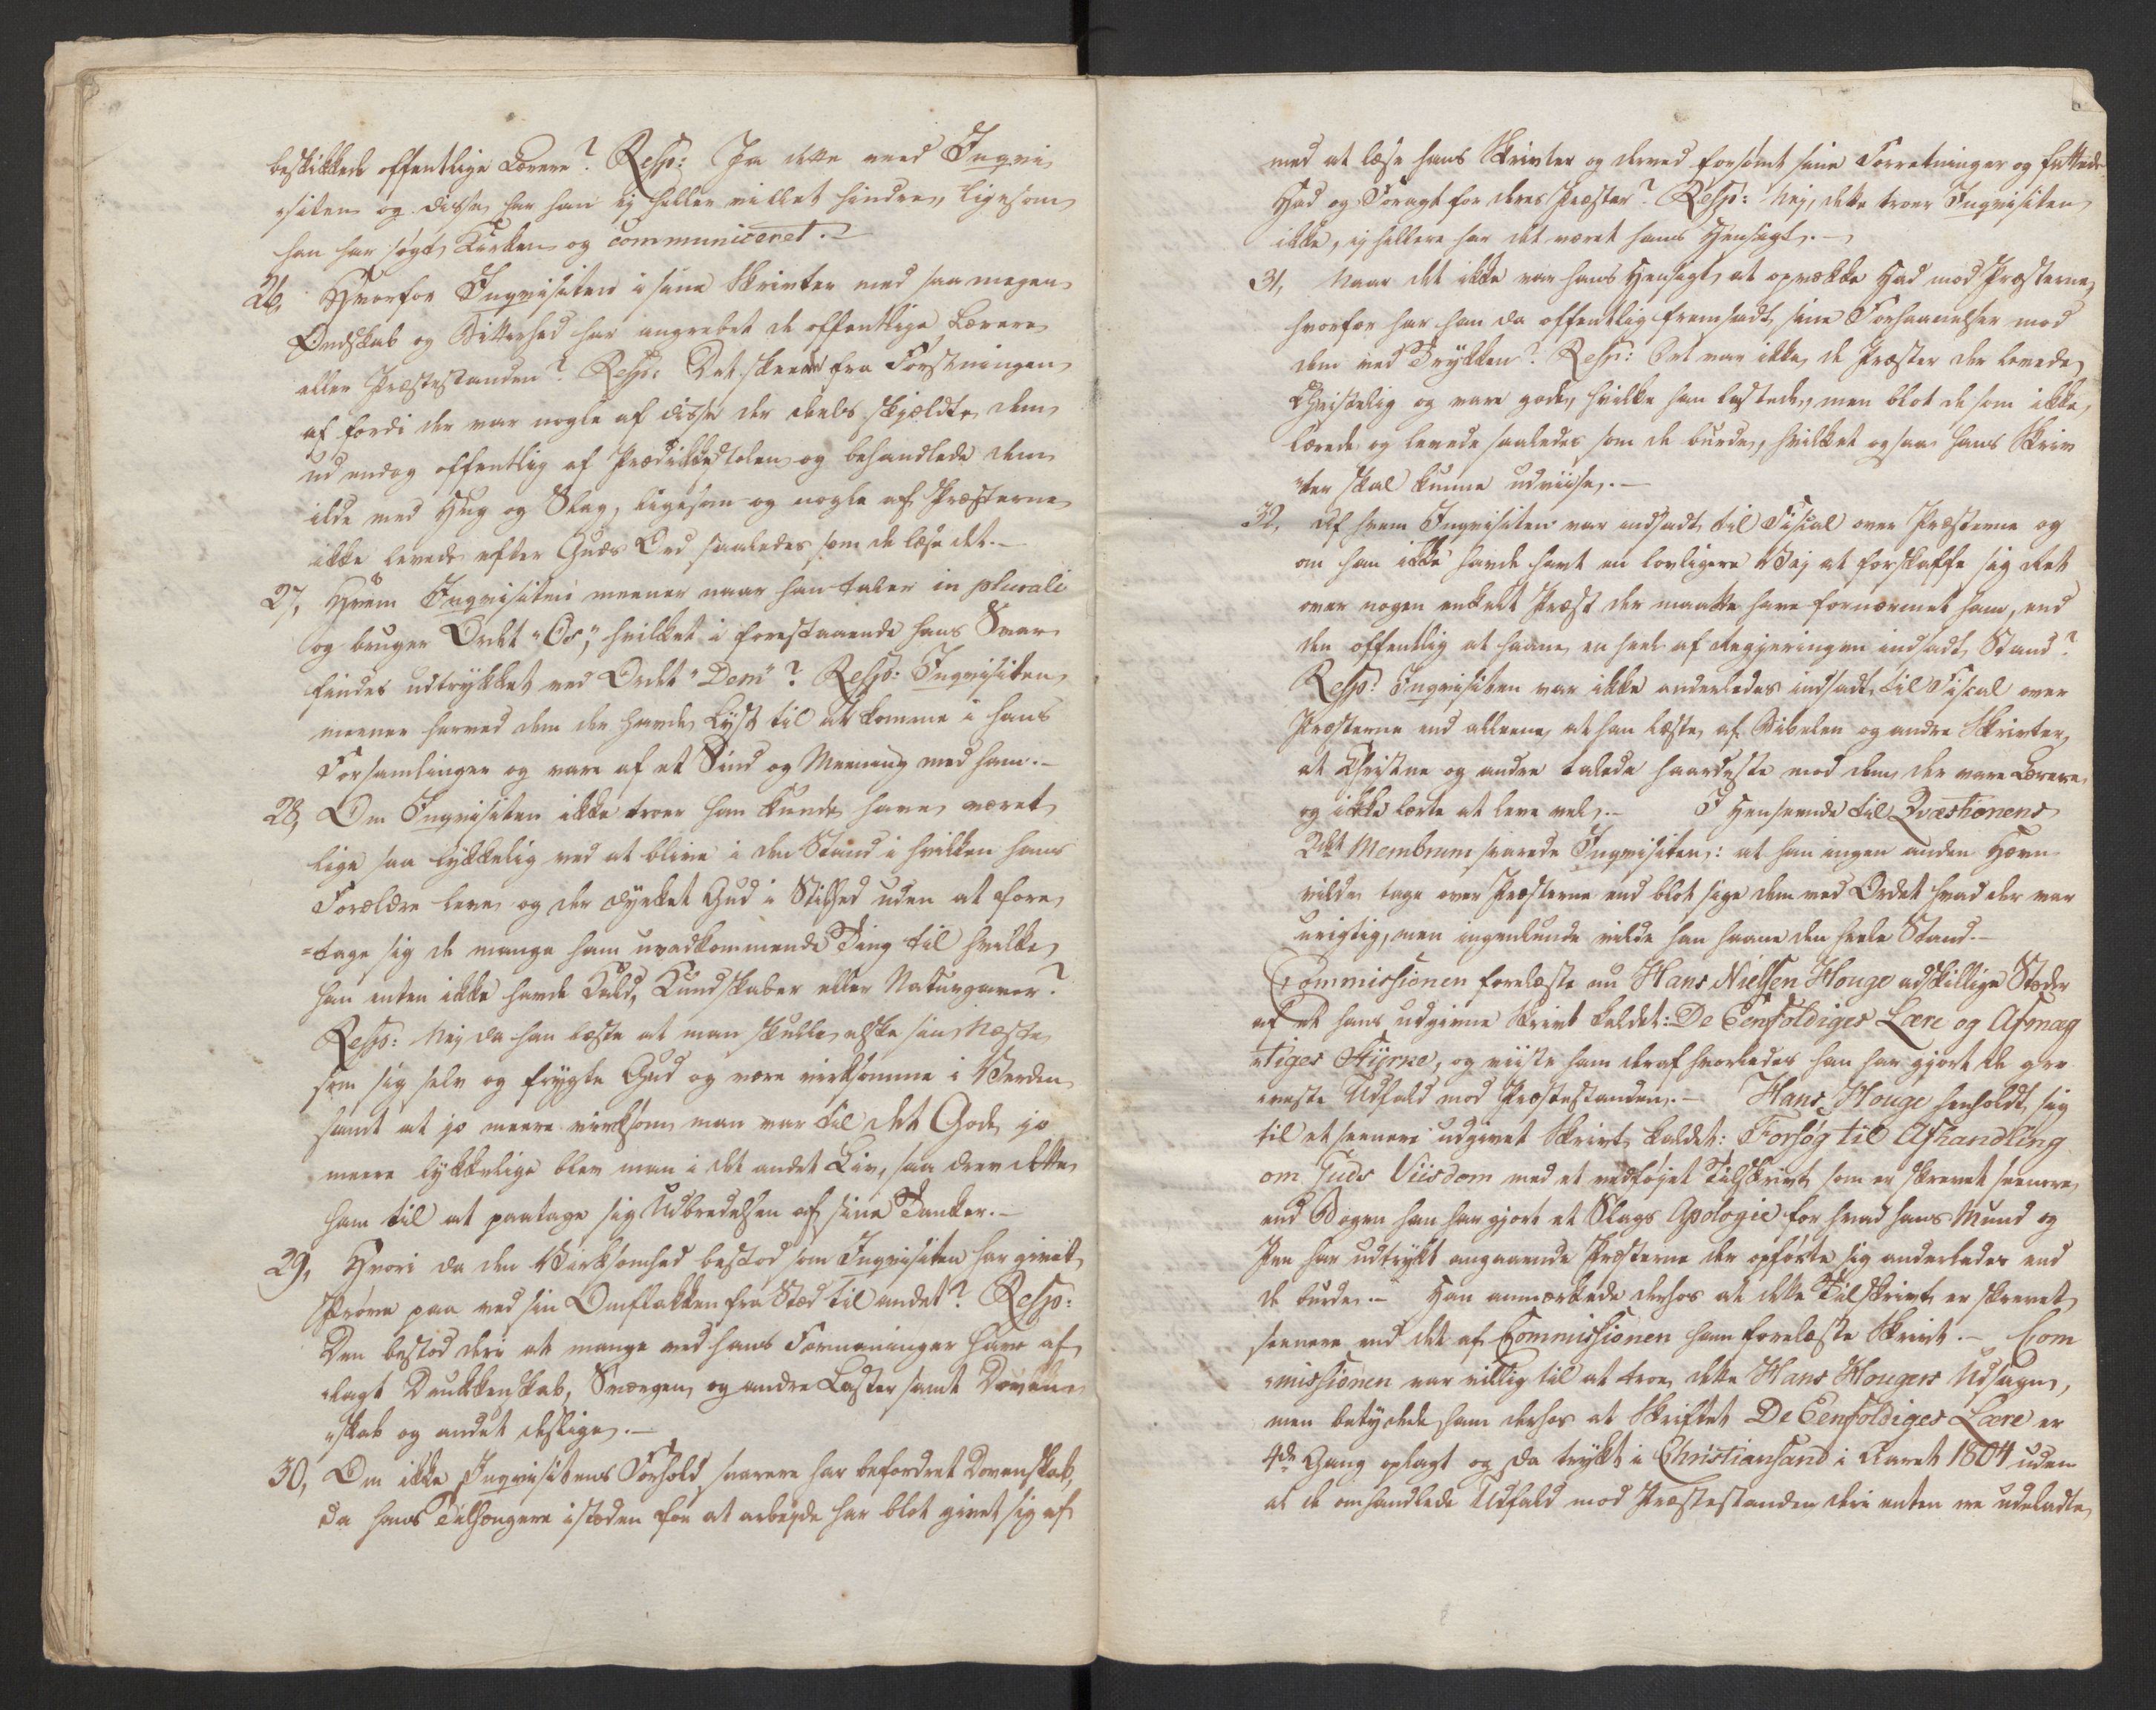 beskikkede offentlige Lærere? Resp: Ja dette veed Inqvi
siten og disse har han ej heller villet hindre, ligesom
han har søgt Kirken og communiceret.-
26, Hvorfor Inqvisiten i sine Skrivter med saa megen
Ondskab og Bitterhed har angrebet de offentlige Lærere
eller Præstestanden? Resp: Det skeede fra Førstningen
af fordi der var nogle af disse der deels skjældte dem
ud endog offentlig af Prædikestolen og behandlede dem
ilde med Hug og Slag, ligesom og nogle af Præsterne
ikke levede efter Guds Ord saaledes som de læse det.-
27, Hvem Inqvisiten meener naar han taler in plurali
og bruger Ordet "Os", hvilket i forestaaende hans Svar
findes udtrykket ved Ordet "Dem"? Resp: Inqvisiten
meener herved dem der havde Lyst til at komme i hans
Forsamlinger og vare af et Sind og Meening med ham.-
28, Om Inqvisiten ikke troer han kunde have været
lige saa lykkelig ved at blive i den Stand i hvilken hans
Forældre leve og der dyrket Gud i Stilhed uden at fore
=tage sig de mange ham uvedkommende Ting til hvilke
han enten ikke havde Kald, Kundskaber eller Naturgaver?
Resp: Nej da han læste at man skulle elske sin Næste
som sig selv og frygte Gud og være virksomme i Verden
samt at jo meere virksom man var til det Gode jo
meere lykkelige blev man i det andet Liv, saa drev dette
ham til at paatage sig Udbredelsen af sine Tanker.-
29, Hvori da den Virksomhed bestod som Inqvisiten har givet
Prøve paa ved sin Omflakken fra Stæd til andet? Resp:
Den bestod deri at mange ved hans Formaninger have af
lagt Drukkenskab, Sværgen og andre Laster samt Doven
"skab og andet deslige.-
30, Om ikke Inqvisitens Forhold snarere har befordret Dovenskab,
da hans Tilhængere istæden for at arbejde har blot givet sig af
med at læse hans Skrivter og derved forsømt sine Forretninger og fattede
Had og Foragt for deres Præster? Resp: Nej, dette troer Inqvisiten
ikke, ej hellere har det været hans Hensigt.-
31, Naar det ikke var hans Hensigt at opvække Had mod Præsterne
hvorfor har han da offentlig fremsadt sine Forhaanelser mod
dem ved Trykken? Resp: Det var ikke de Præster der levede
Christelig og vare gode, hvilke han lastede, men blot de som ikke
lærede og levede saaledes som de burde, hvilket ogsaa hans Skriv
"ter skal kunne udviise.-
32, Af hvem Inqvisiten var indsadt til Fiscal over Præsterne og
om han ikke havde havt en lovligere Vej at forskaffe sig Ret
over nogen enkelt Præst der maatte have fornærmet ham, end
den offentlig at haane en heel af Regjeringen indsadt Stand?
Resp: Inqvisiten var ikke anderledes indsadt til Fiscal over
Præsterne end alleene at han læste af Bibelen og andre Skrivter,
at Christne og andre talede haardeste mod dem der vare Lærere
og ikke lærte at leve vel.- I Henseende til Qvæstionens
2det Membrum svarede Inqvisiten: at han ingen anden Hævn
vilde tage over Præsterne end blot sige dem ved Ordet hvad der var
urigtig, men ingenlunde vilde han haane den heele Stand.-
Commissionen forelæste nu Hans Nielsen Houge adskillige Stæder
af et hans udgivne Skrivt kaldet: De Eenfoldiges Lære og Afmæg
tiges Styrke, og viiste ham deraf hvorledes han har gjort de gro
veste Udfald mod Præstestanden.- Hans Houge henholdt sig
til et seenere udgivet Skrivt kaldet: Forsøg til Afhandling
om Guds Viisdom med et vedføjet Tilskrivt som er skrevet seenere
end Bogen han har gjort et Slags Apologie for hvad hans Mund og
Pen har udtrykt angaaende Præsterne der opførte sig anderledes end
de burde.- Han anmærkede derhos at dette Tilskrivt er skrevet
seenere end det af Commissionen ham forelæste Skrivt.- Com
missionen var villig til at troe dette Hans Houges Udsagn,
men betydede ham derhos at Skriftet De Eenfoldiges Lære er
4de Gang oplagt og da trykt i Christiansand i Aaret 1804 uden
at de omhandlede Udfald mod Præstestanden deri enten ere udeladte